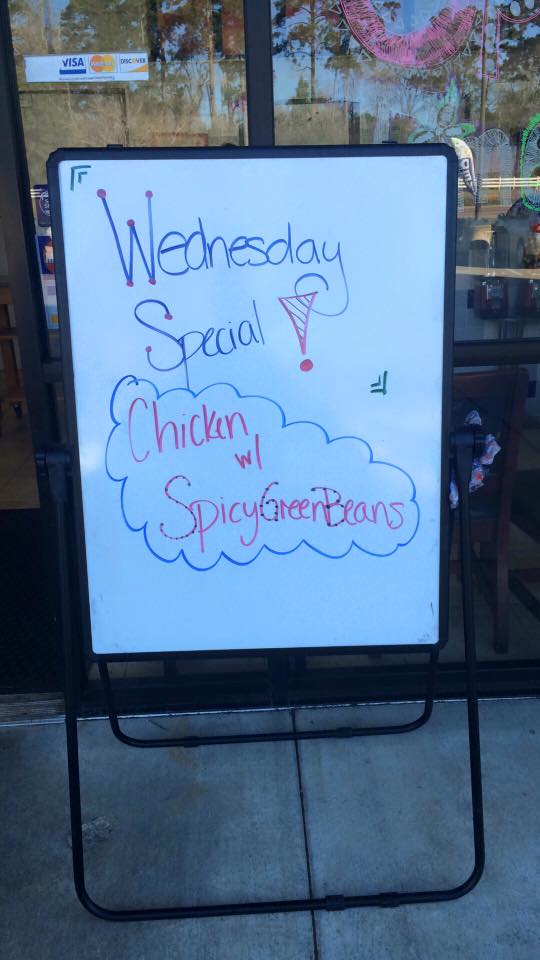 VISA MasterCard DISCOVER
Wednesday
Special !
Chicken
w/
Spicy Green Beans